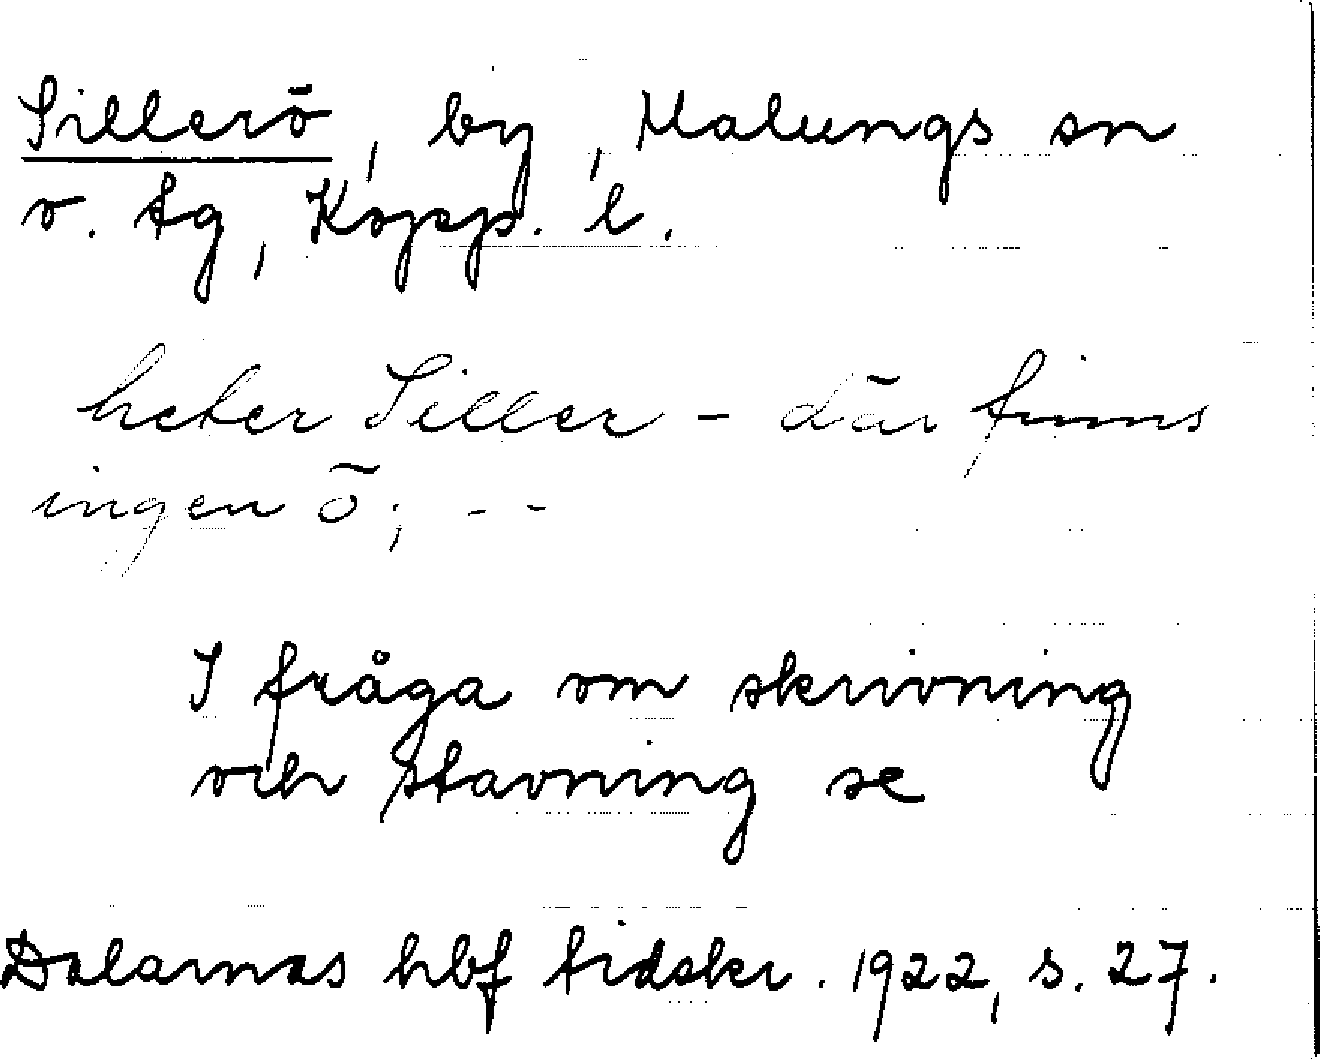 Sillerö, by, Malungs sn
o. tg, Kopp. l.
heter Siller - där finns
ingen ö; - -
I fråga om skrivning
och stavning se
Dalarnas hbf tidskr. 1922, s. 27.